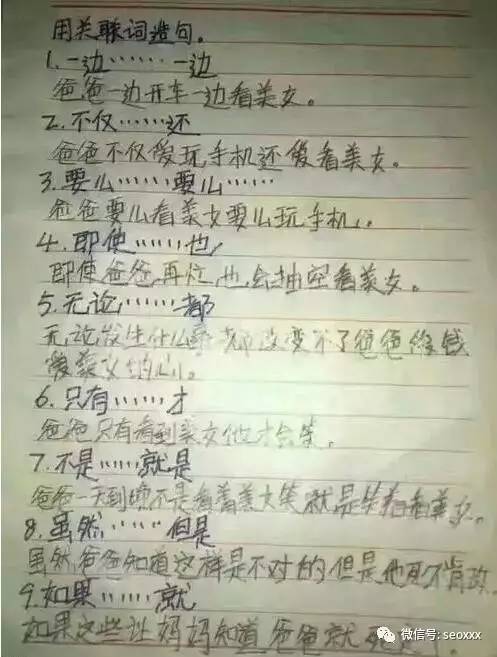 用关联词造句。
1.一边……一边
爸爸一边开车一边看美女。
2.不仅……还
爸爸不仅爱玩手机还爱看美女。
3.要么……要么……
爸爸要么看美女要么玩手机。
4.即使……也
即使爸爸再忙,也会抽空看美女。
5.无论……都
无论发生什么事都改变不了爸爸像钱
爱美女的心。
6.只有……才
爸爸只有看到美女他才会笑。
7.不是……就是
爸爸一天到晚不是看着美女笑就是笑着看美女。
8.虽然……但是
虽然爸爸知道这样是不对的但是他死不肯改
9.如果……就
如果这些让妈妈知道爸爸就死
微信号: seoxxx